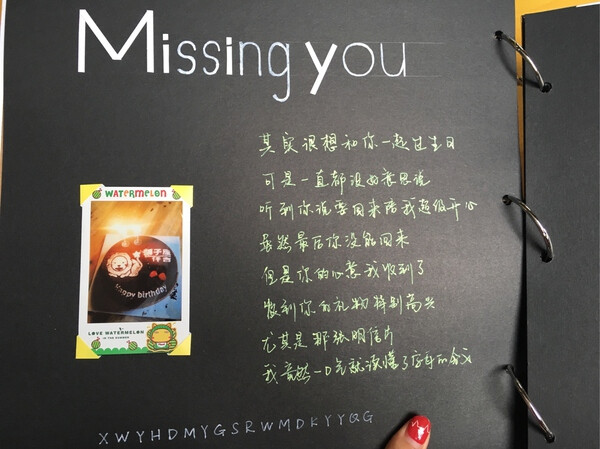 Missing you
其实很想和你一起过生日
可是一直都没好意思说
听到你说要回来陪我超级开心
虽然最后你没能回来
但是你的心意我收到了
收到你的礼物特别高兴
尤其是那张明信片
我竟然一口气就读懂了字母的含义
WATERMELON
Happy birthday
LOVE WATERMELON
IN THE SUMMER
XWYHDMYGSRWMDKYYQG